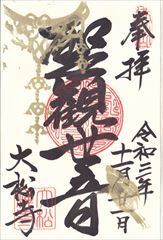 奉拝
令和三年
十一月廿一日
聖観世音
大松寺